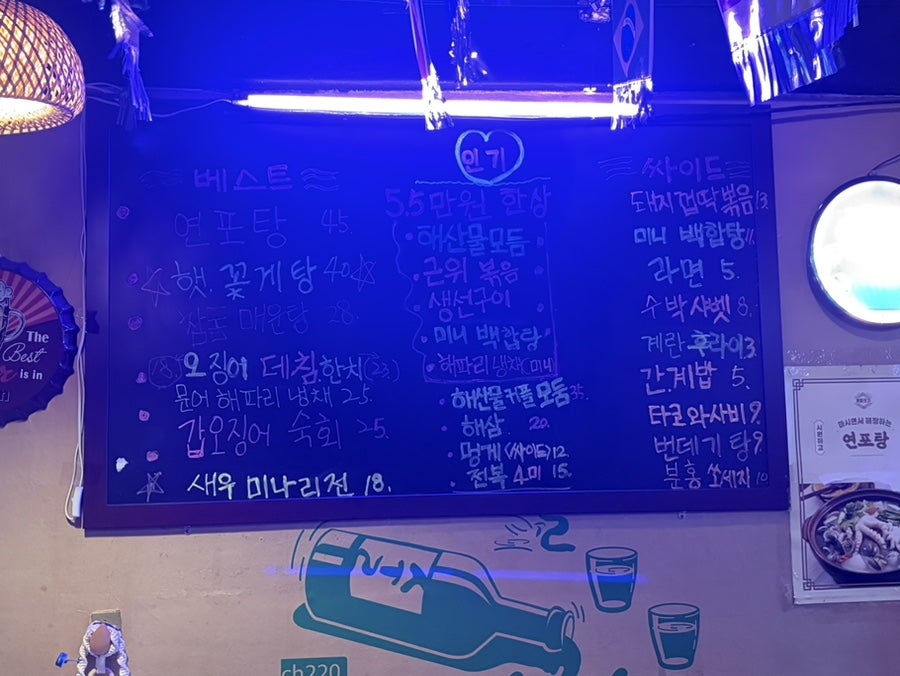 베스트
연포탕 45.
햇 꽃게탕 40
매운탕 28.
오징어 데침, 한치
문어 해파리 냉채 25.
갑오징어 숙회 25.
새우 미나리전 18.
인기
5.5만원 한상
· 해산물모듬
· 근위 볶음
· 생선구이
· 미니 백합탕
· 해파리 냉채(미니)
· 해산물커플모듬 35.
· 해삼 20.
· 멍게 (싸이드) 12.
· 전복 4미 15.
싸이드
돼지껍딱볶음 13.
미니 백합탕 11.
라면 5.
수박샤벳 8.
계란후라이 3.
간.계밥 5.
타코와사비 9.
번데기탕 9.
분홍 쏘세지 10
The
Best
is in
시원하고
마시면서 해장하는
연포탕
ch220